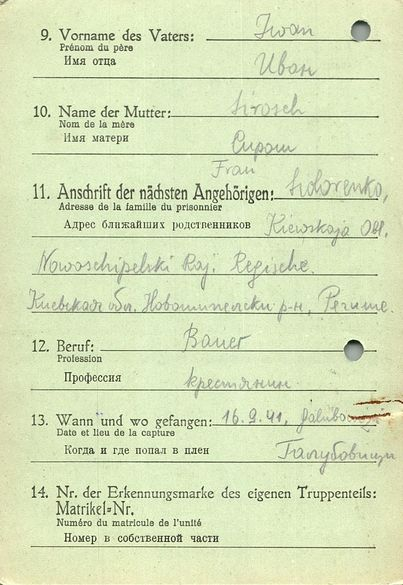 9. Vorname des Vaters: Iwan
Prénom du père
Имя отца Иван
10. Name der Mutter: Sirosch
Nom de la mère
Имя матери Сирош
Frau
11. Anschrift der nächsten Angehörigen: Sidorenko,
Adresse de la famille du prisonnier
Адрес ближайших родственников Kiewskaja Obl.
Nowoschipelski Raj. Regische.
Киевская обл. Новошипелски р-н, Регише.
12. Beruf: Bauer
Profession
Профессия крестянин.
13. Wann und wo gefangen: 16.9.41,
Date et lieu de la capture
Когда и где попал в плен Галубовици
14. Nr. der Erkennungsmarke des eigenen Truppenteils:
Matrikel=Nr.
Numéro du matricule de l'unité
Номер в собственной части